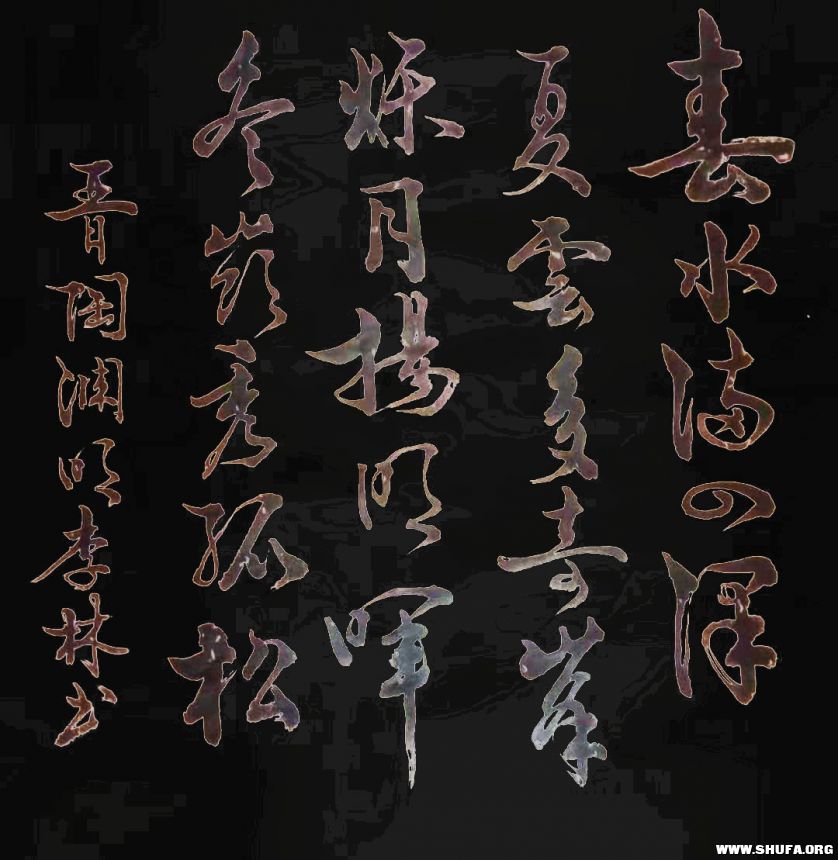 春水满四泽
夏雲多奇峯
秌月揚明暉
冬嶺秀孤松
晋陶渊明李林书
WWW.SHUFA.ORG